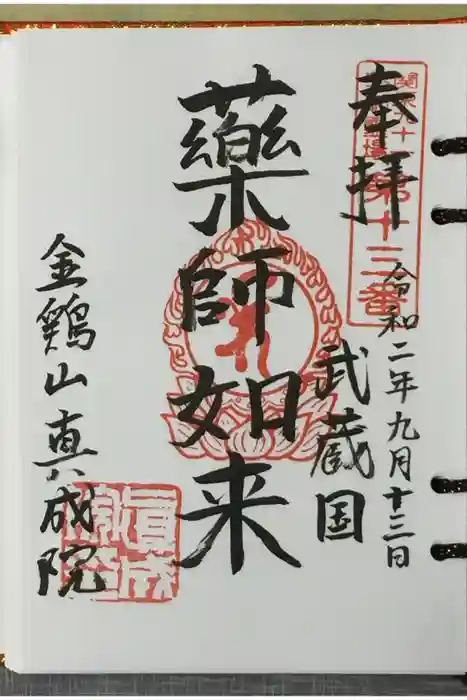 奉拝
第十三番
令和二年九月十三日
武蔵国
藥師如来
金鶏山真成院